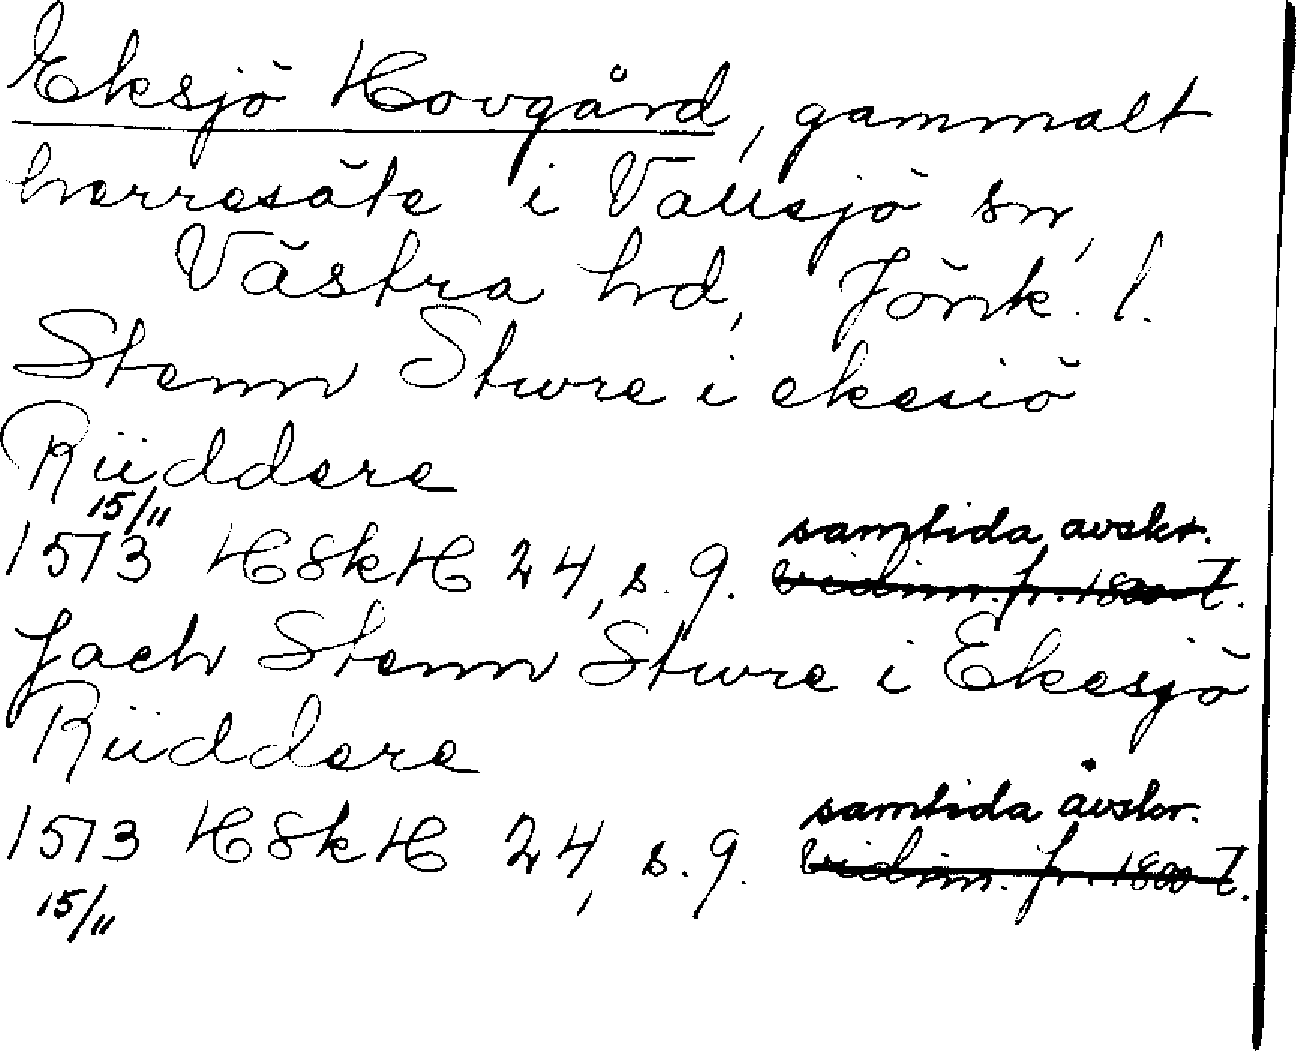 Eksjö Hovgård, gammalt
herresäte i Vallsjö sn,
Västra hd, Jönk. l.
Stenn Sture i ekesiö
Rüddere
15/11
1513 HSkH 24, s. 9. samtida avskr.
vidim. fr. 1800-t.
Jach Stenn Sture i Ekesjö
Rüddere
samtida avskr.
1513 HSkH 24, s. 9. vidim. fr. 1800-t.
15/11